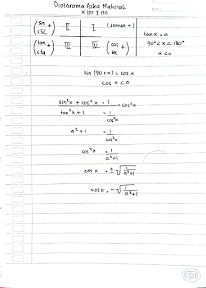 Diptarama Aska Maherul
X IPS 3 (11)
(sin + csc) II I (semua +)
(tan + ctg) III IV (cos + sec)
tan x = a
90° < x < 180°
x < 0
sin (90 + x) = cos x
cos x < 0
sin²x + cos²x = 1 ÷ cos²x
tan²x + 1 = 1/cos²x
a² + 1 = 1/cos²x
cos²x = 1/a²+1
cos x = ± √1/a²+1
cos x = - √1/a²+1